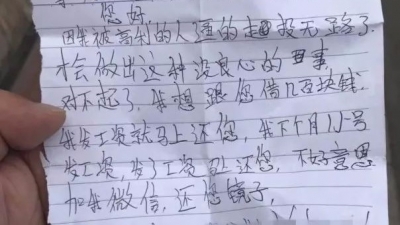 您好,
因我被高利的人逼的走投无路了
才会做出这种没良心的事
对不起了,我想跟您借几百块钱.
我发工资就马上还您,我下个月15号
发工资,发了工资马上还您,不好意思
加我微信,还您镜子,